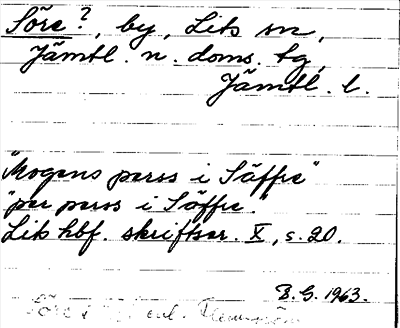 Söre?, by, Lits sn,
Jämtl. n. doms. tg,
Jämtl. l.
"Mogens perss i Säffre"
"per perss i Säffre."
Lits hbf. skriftser. X, s. 20.
B.G. 1963.
Söre enl.